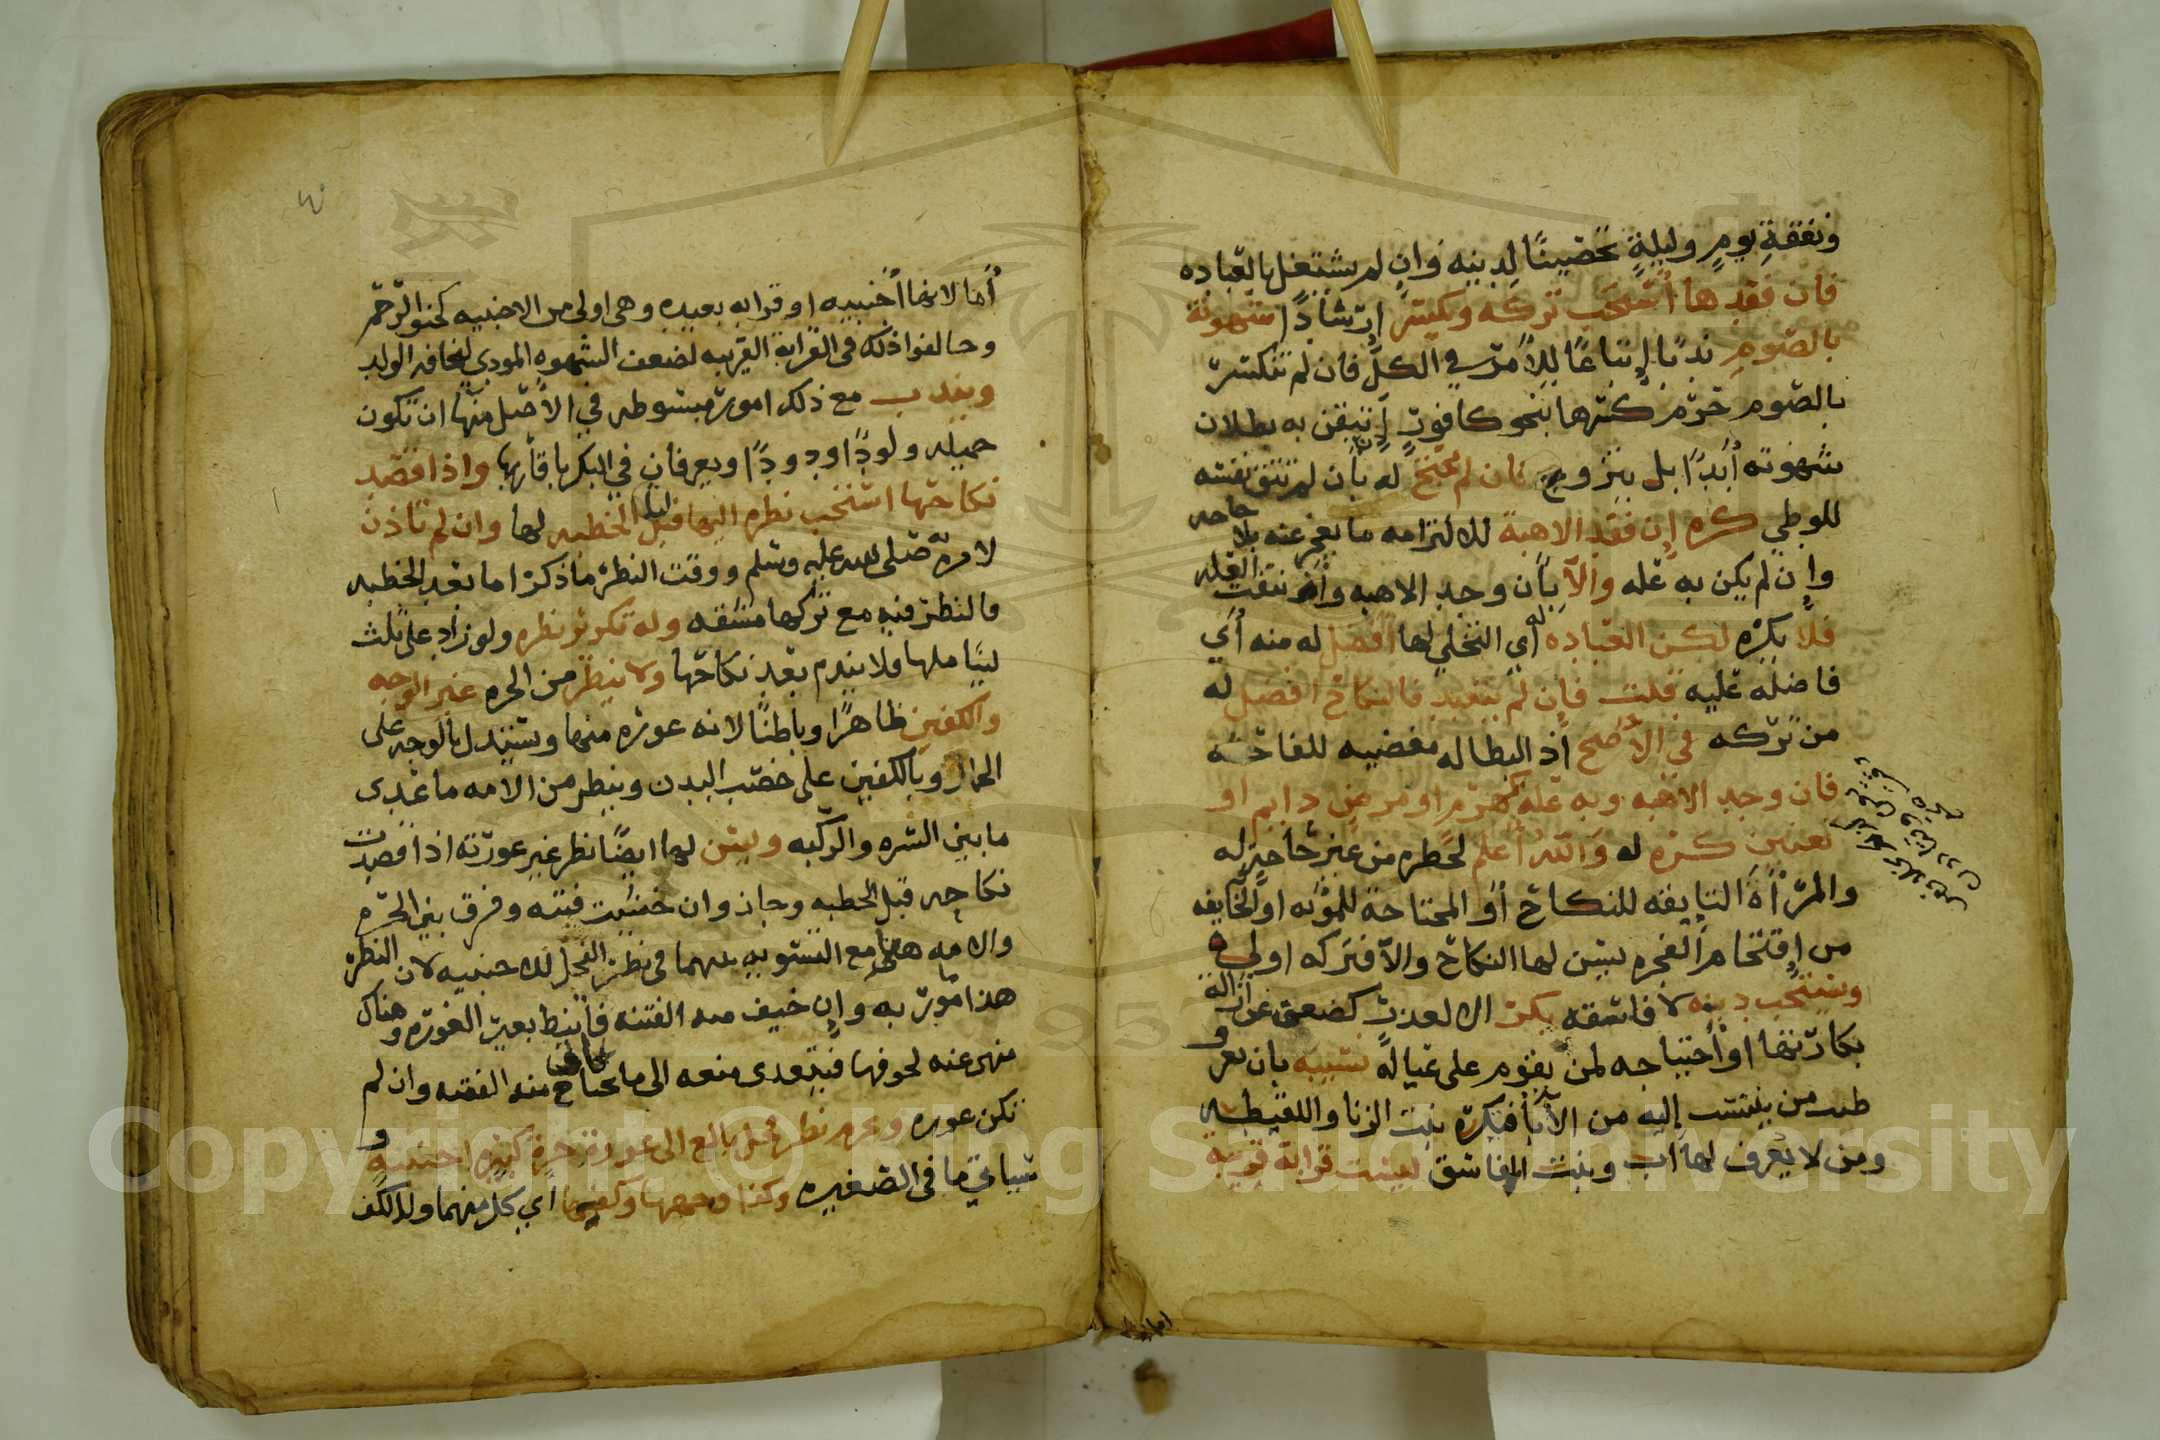 ونفقة يوم وليلة تحصينا لدينه وان لم يشتغل بالعباده
فان فقدها استحب تركه ويكسر ارشادا شهوته
بالصوم ندبا اتباعا للامر في الكل فان لم تنكسر
بالصوم حرم كسرها بنحو كافور ان تيقن به بطلان
شهوته ابدا بل يتزوج فان لم يحتج له بان لم تتق نفسه
للوطي كره ان فقد الاهبة لالتزامه ما يعجز عنه بلا حاجه
وان لم يكن به عله والا بان وجد الاهبه وانتفت العله
فلا يكره له لكن العباده اي التخلي لها افضل له منه اي
فاضله عليه قلت فان لم يتعبد فالنكاح افضل له
من تركه في الاصح اذ البطاله مفضيه للفاحشه
فان وجد الاهبه وبه عله كهرم او مرض دايم او
تعنين كره له والله اعلم لخطره من غير حاجة له
والمرأة التايقه للنكاح او المحتاجة للمؤنه او الخايفه
من اقتحام الفجره يسن لها النكاح والا فتركه اولى
ويستحب دينه لا فاسقه بكر الا لعذر كضعفه عن ازالة
بكارتها او احتياجه لمن يقوم على عياله نسيبه بان يعرف
طيب من ينتسب اليه من الآباء فيكره بنت الزنا واللقيطه
ومن لا يعرف لها اب وبنت الفاسق ليست قرابة قريبة
اما لانها اجنبيه او قرابه بعيده وهي اولى من الاجنبيه
وخالفوا ذلك في القرابة القريبه لضعف الشهوه المودي لنحافه الولد
ويندب مع ذلك امور مبسوطه في الاصل منها ان تكون
جميله ولودا ودودا ويعرفان في البكر باقاربها واذا قصد
نكاحها استحب نظره اليها قبل الخطبه لها وان لم تاذن
لامره صلى الله عليه وسلم ووقت النظر ما ذكر اما بعد الخطبه
فالنظر فيه مع تركها مشقه وله تكرير نظره ولو زاد على ثلث
ليتاملها ولا يندم بعد نكاحها ولا ينظر من الحره غير الوجه
والكفين ظاهرا وباطنا لانه عوره منها ويستدل بالوجه على
الجمال وبالكفين على خصب البدن وينظر من الامه ما عدى
ما بين السره والركبه ويسن لها ايضا نظر غير عورته اذا قصدت
نكاحه قبل الخطبه وجاز وان خشيت فتنه وفرق بين الحره
والامه هنا مع التسويه بينهما في نظر الفحل للاجنبيه لان النظر
هذا مامور به وان خيف منه الفتنه فانيط بغير العوره وهناك
منهي عنه لخوفها فيتعدى منعه الى ما يخاف منه الفتنه وان لم
تكن عوره ويحرم نظر فحل بالغ الى عورة حرة كبيره اجنبية و
سياتي ما في الصغيره وكذا وجهها وكفيها اي كل منهما ولو الكف